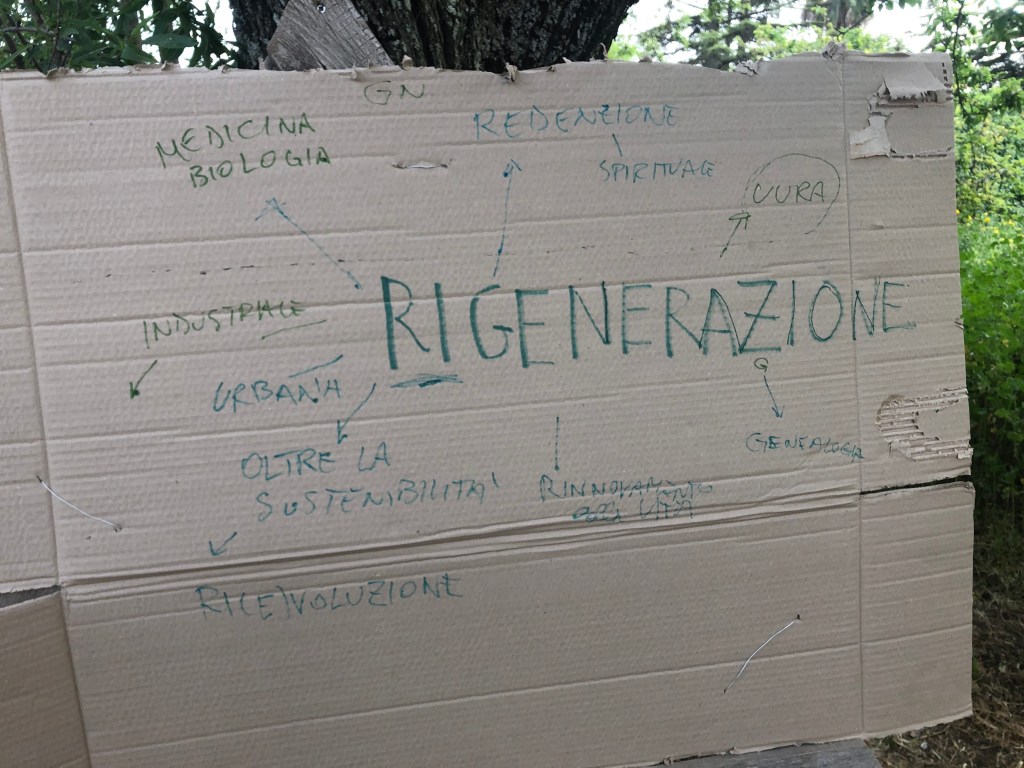 GN
MEDICINA
BIOLOGIA
REDENZIONE
SPIRITUALE
CURA
RIGENERAZIONE
INDUSTRIALE
URBANA
G
GENEALOGIA
OLTRE LA
SOSTENIBILITA'
RINNOVAMENTO
VITA
RI(E)VOLUZIONE